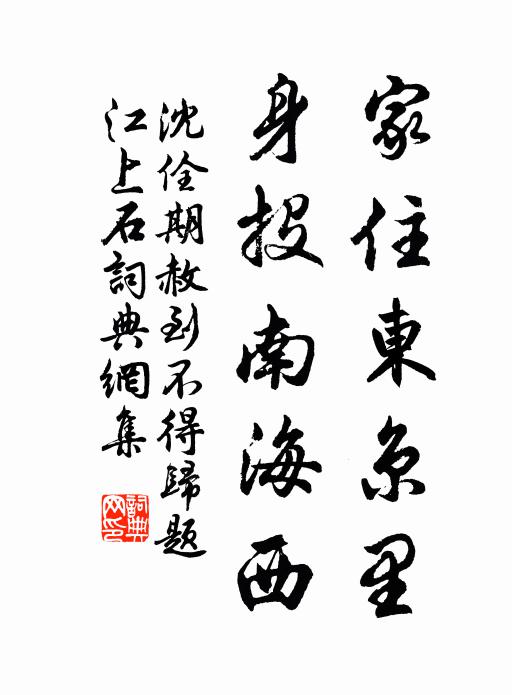 家住東京里
身投南海西
沈佺期赦到不得歸題
江上石詞典網集
詞典網印